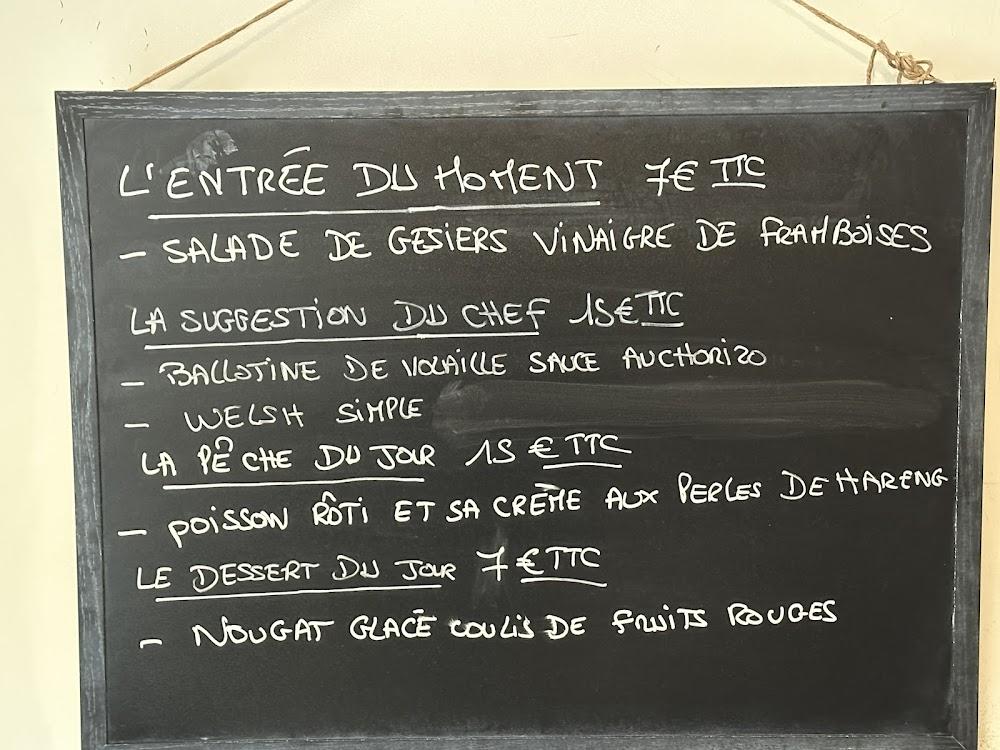 L'ENTRÉE DU MOMENT 7€ TTC
- SALADE DE GESIERS VINAIGRE DE FRAMBOISES
LA SUGGESTION DU CHEF 15€ TTC
- BALLOTINE DE VOLAILLE SAUCE AU CHORIZO
- WELSH SIMPLE
LA PÊCHE DU JOUR 15 € TTC
- POISSON RÔTI ET SA CRÈME AUX PERLES DE HARENG
LE DESSERT DU JOUR 7 € TTC
- NOUGAT GLACÉ COULIS DE FRUITS ROUGES